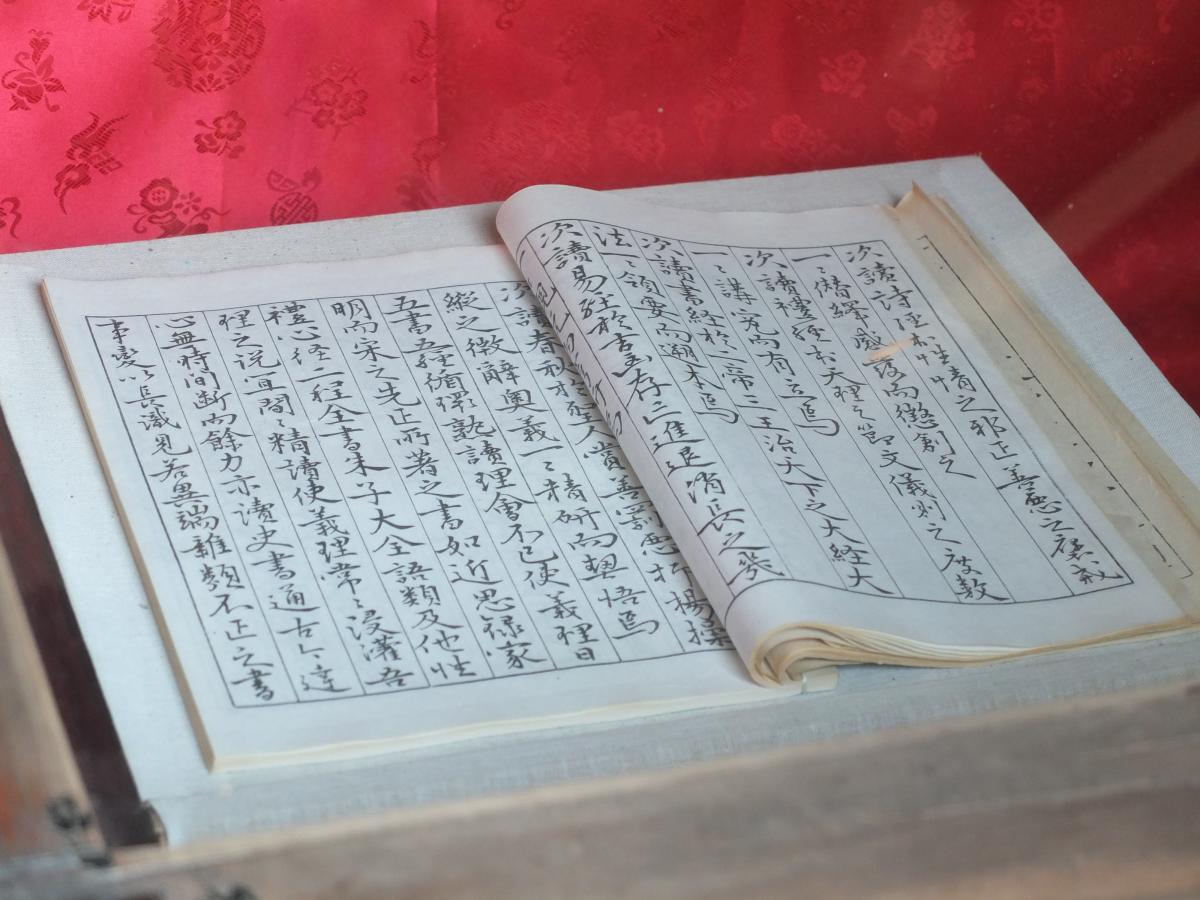 次讀詩經於性情之邪正善惡之褒戒
一〻潛繹感發而懲創之
次讀禮經於天理之節文儀則之度數
一〻講究而有立焉
次讀書經於二帝三王治天下之大經大
法一〻領要而遡本焉
次讀易經於吉凶存亡進退消長之幾
次讀春秋於聖人賞善罰惡抑揚操
縱之微辭奧義一〻精研而契悟焉
五書五經循環熟讀理會不已使義理日
明而宋之先正所著之書如近思錄家
禮心經二程全書朱子大全語類及他性
理之說宜間〻精讀使義理常〻浸灌吾
心無時間斷而餘力亦讀史書通古今達
事變以長識見若異端雜類不正之書